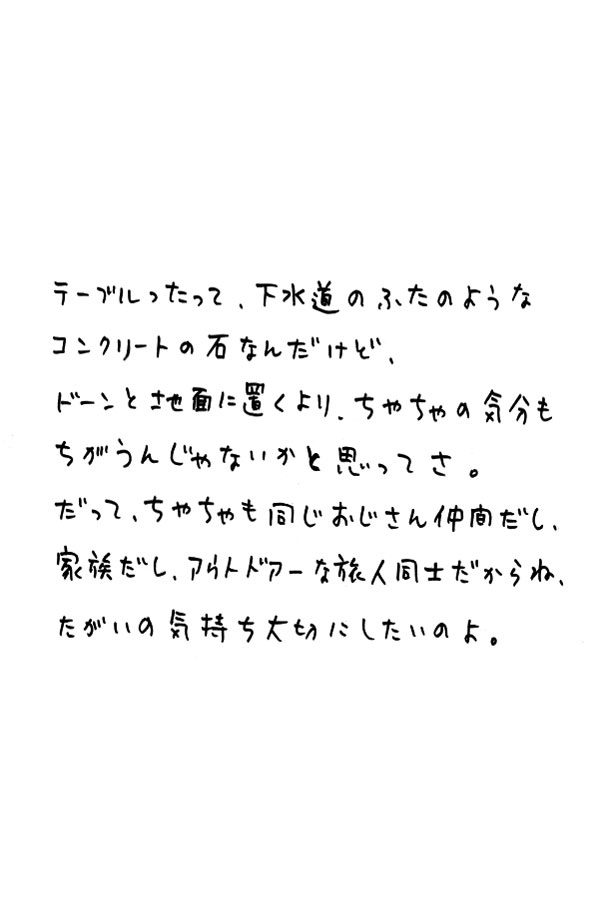 テーブルったって、下水道のふたのような
コンクリートの石なんだけど、
ドーンと地面に置くより、ちゃちゃの気分も
ちがうんじゃないかと思ってさ。
だって、ちゃちゃも同じおじさん仲間だし、
家族だし、アウトドアーな旅人同士だからね、
たがいの気持ち大切にしたいのよ。